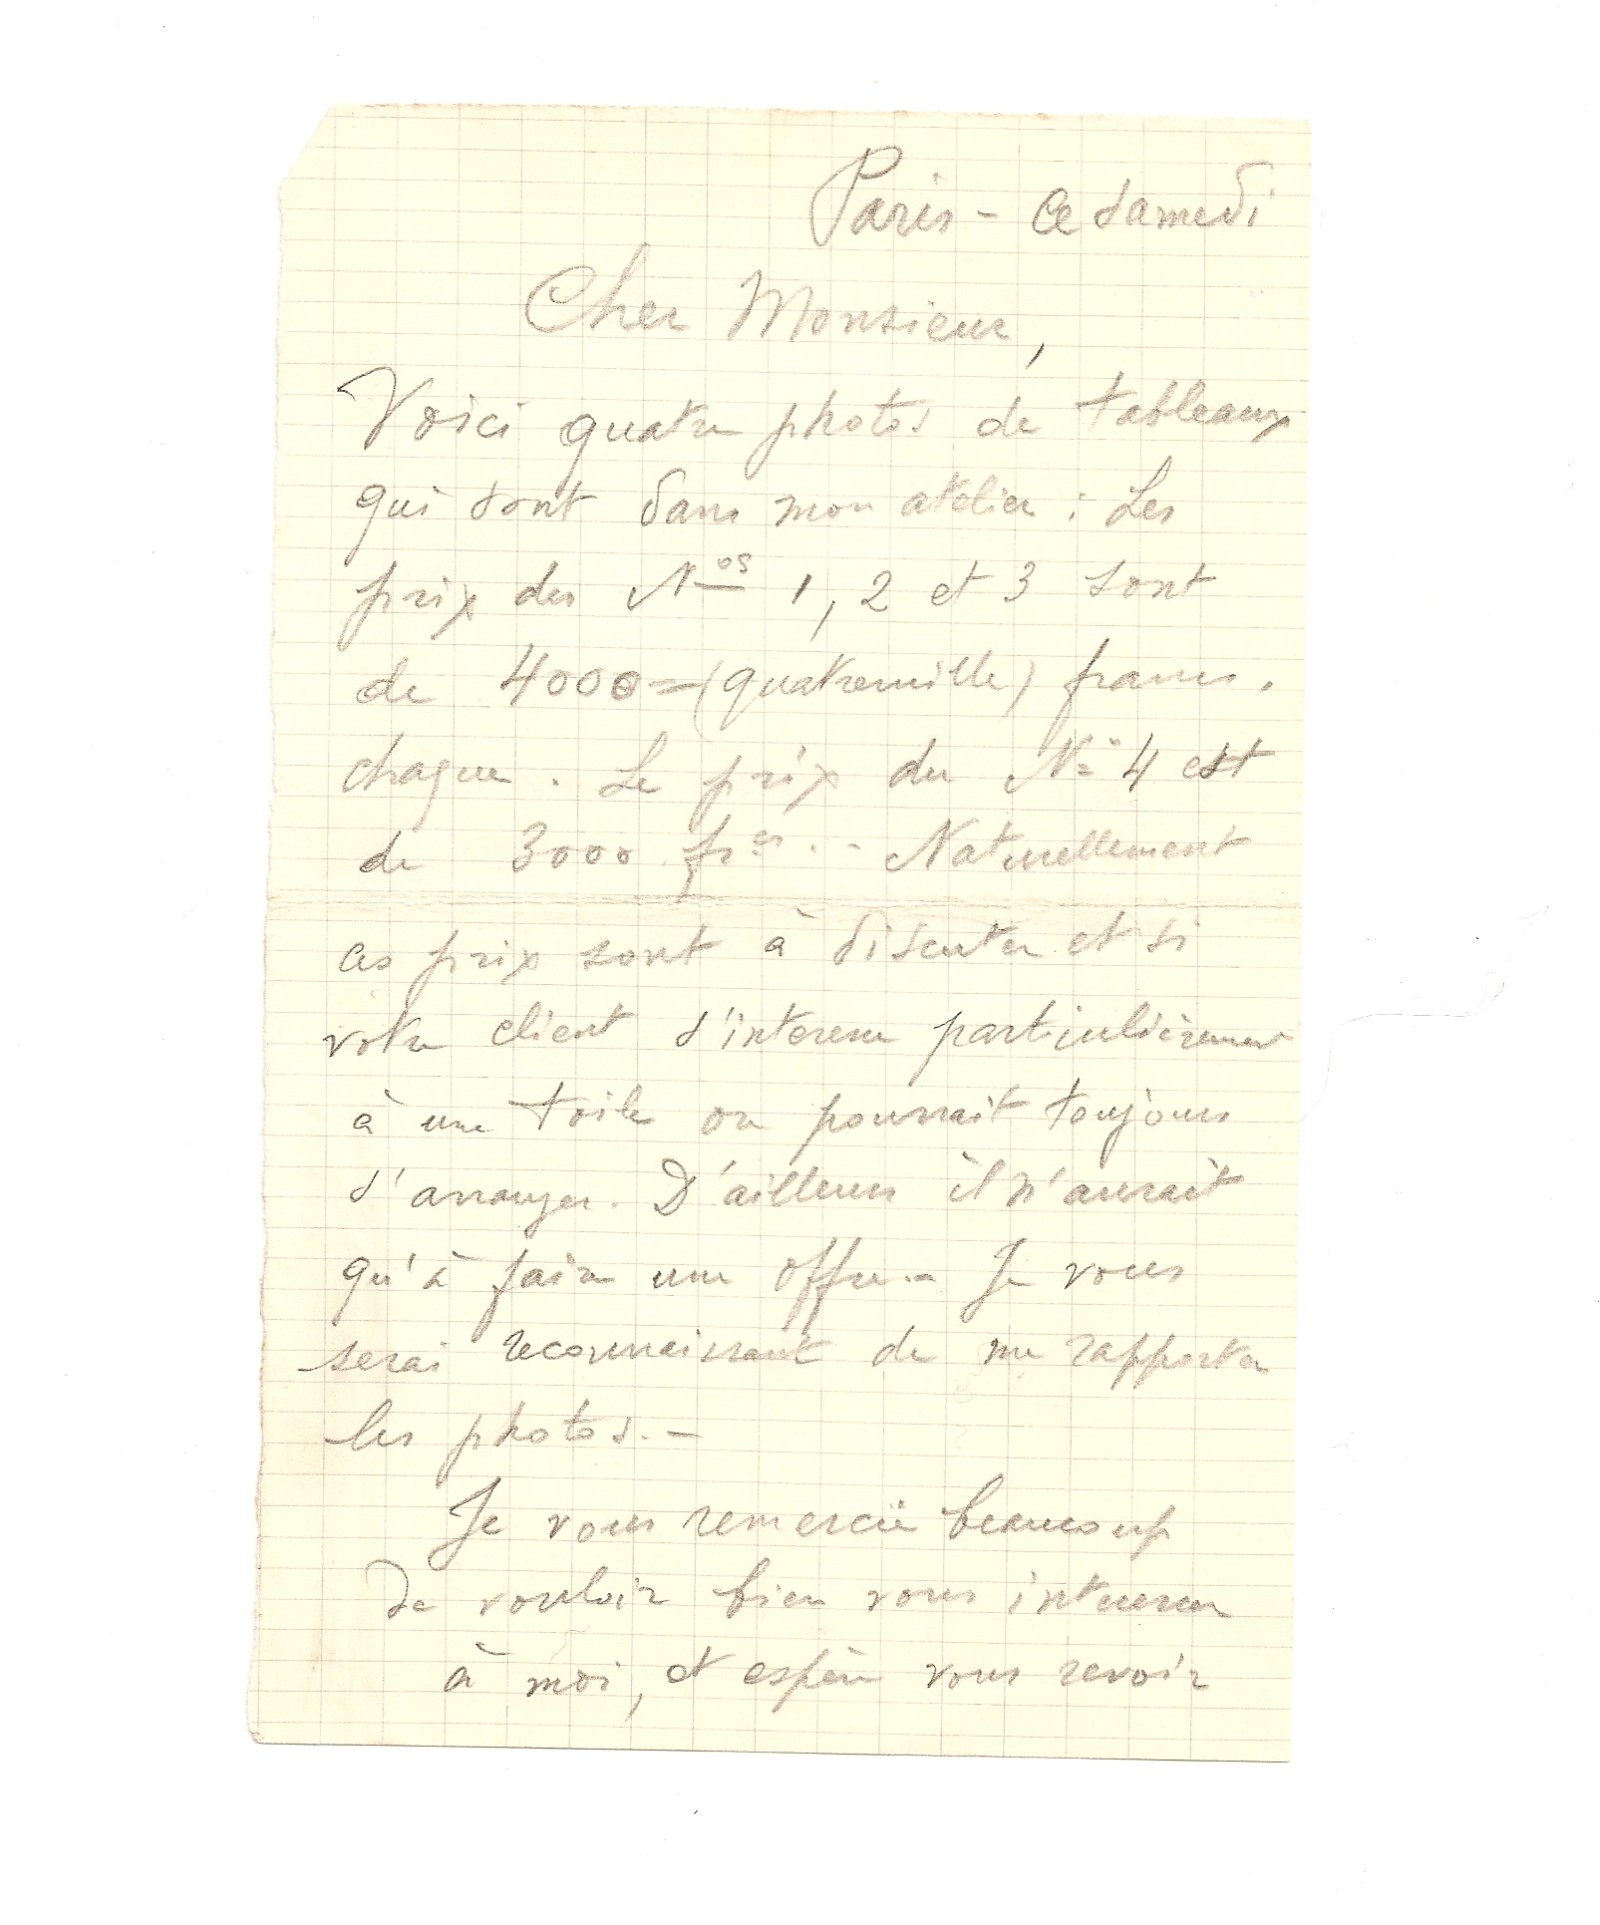 Paris - Ce Samedi
Cher Monsieur,
Voici quatre photos de tableaux
qui sont dans mon atelier : Les
prix des Nos 1, 2 et 3 sont
de 4000=(quatremille) francs.
chaque. Le prix du No 4 est
de 3000 frcs.- Naturellement
ces prix sont à discuter et si
votre client s'interesse particulièrement
à une toile on pourrait toujours
s'arranger. D'ailleurs il n'aurait
qu'à faire une offre.- Je vous
serai reconnaissant de me rapporter
les photos.-
Je vous remercie beaucoup
De vouloir bien vous interesser
à moi, et espère vous revoir